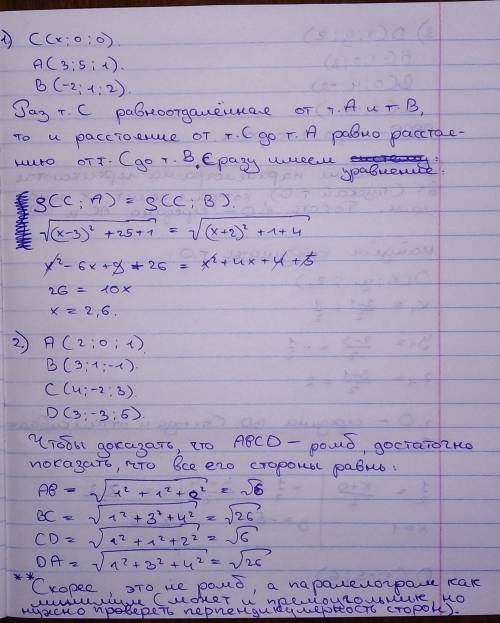 1) C(x; 0; 0).
A(3; 5; 1).
B(-2; 1; 2).
Раз т. C равноотдалённая от т. A и т. B,
то и расстояние от т. C до т. A равно расстоя-
нию от т. C до т. B. Сразу имеем
уравнение:
ρ(C; A) = ρ(C; B).
√((x-3)² + 25+1) = √((x+2)² + 1+4)
x² - 6x + 9 + 26 = x² + 4x + 4 + 5
26 = 10x
x = 2,6.
2) A(2; 0; 1).
B(3; 1; -1).
C(4; -2; 3).
D(3; -3; 5).
Чтобы доказать, что ABCD - ромб, достаточно
показать, что все его стороны равны:
AB = √(1² + 1² + 2²) = √6
BC = √(1² + 3² + 4²) = √26
CD = √(1² + 1² + 2²) = √6
DA = √(1² + 3² + 4²) = √26
**Скорее, это не ромб, а паралелограм как
минимум (может и прямоугольник, но
нужно проверять перпендикулярность сторон).